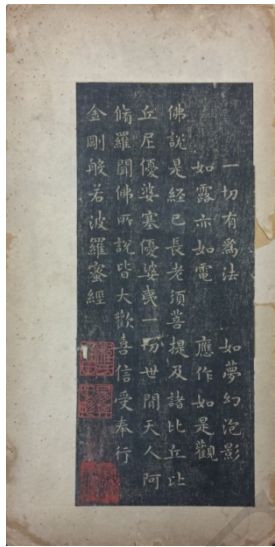 一切有為法 如夢幻泡影
如露亦如電 應作如是觀
佛說是經已長老須菩提及諸比丘比
丘尼優婆塞優婆夷一切世間天人阿
脩羅聞佛所說皆大歡喜信受奉行
金剛般若波羅蜜經